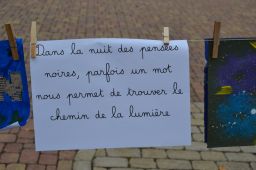 Dans la nuit des pensées
noires, parfois un mot
nous permet de trouver le
chemin de la lumière